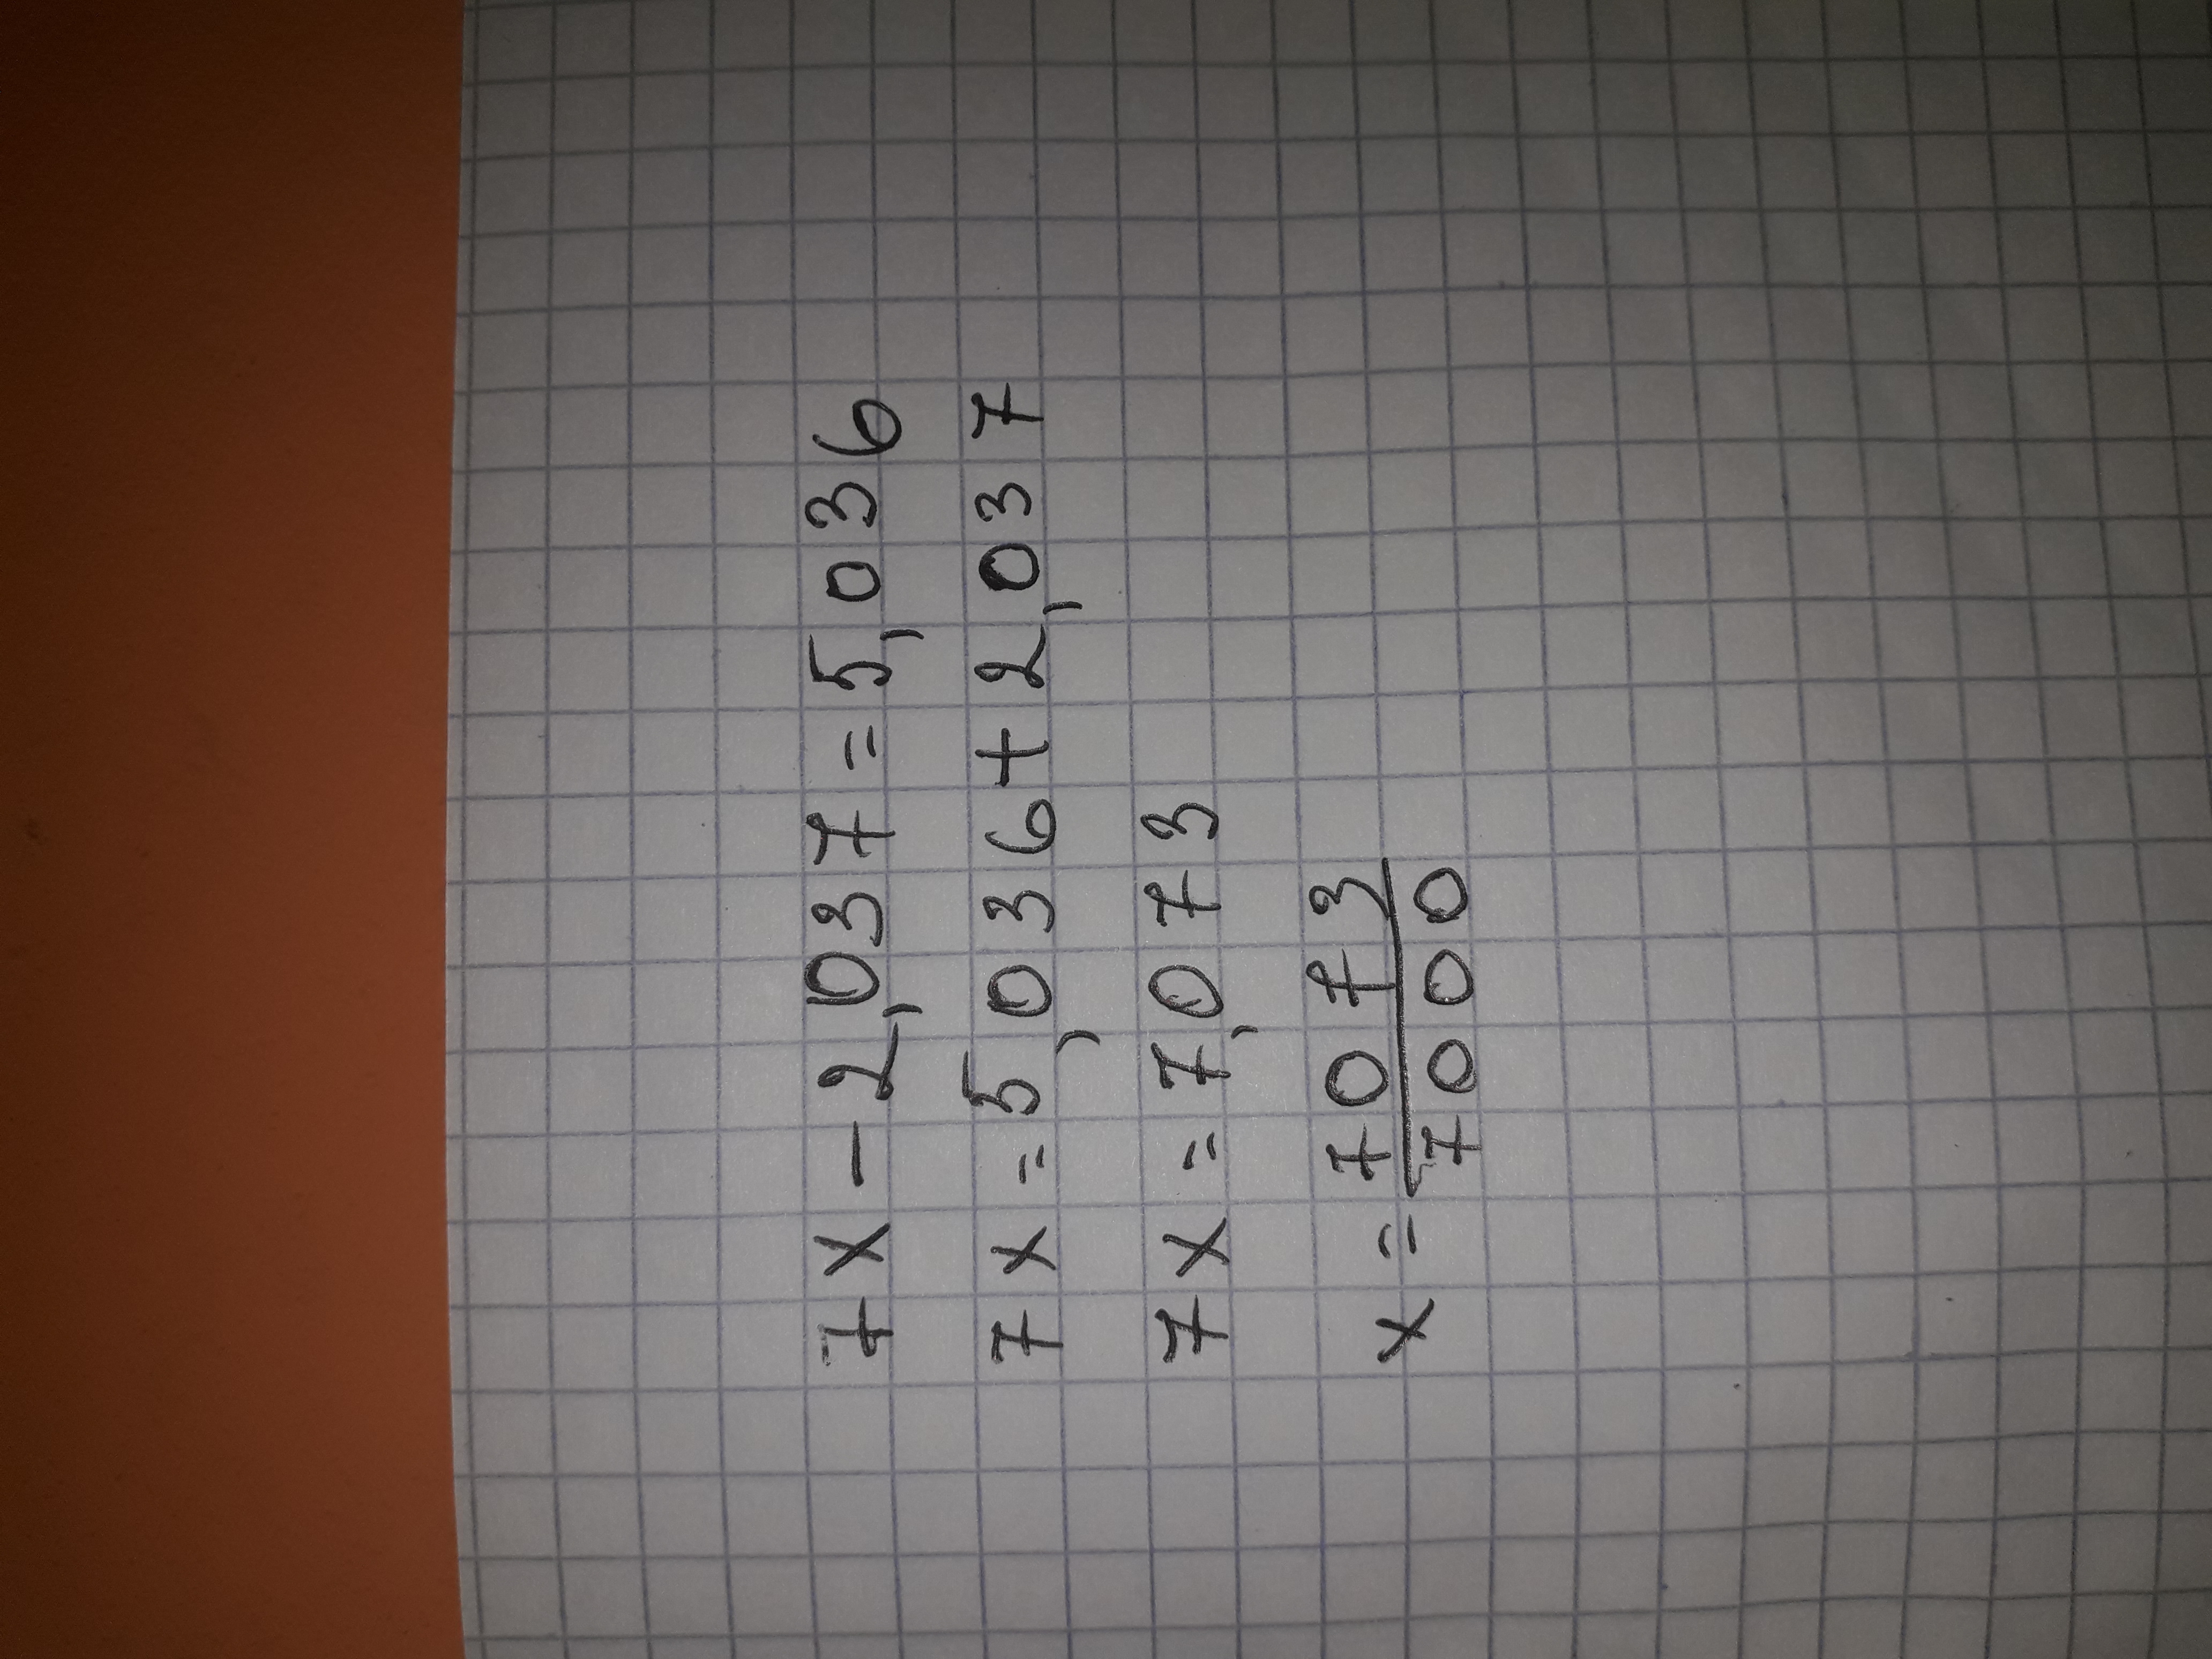 7x-2,037=5,036
7x=5,036+2,037
7x=7,073
x=7073/7000